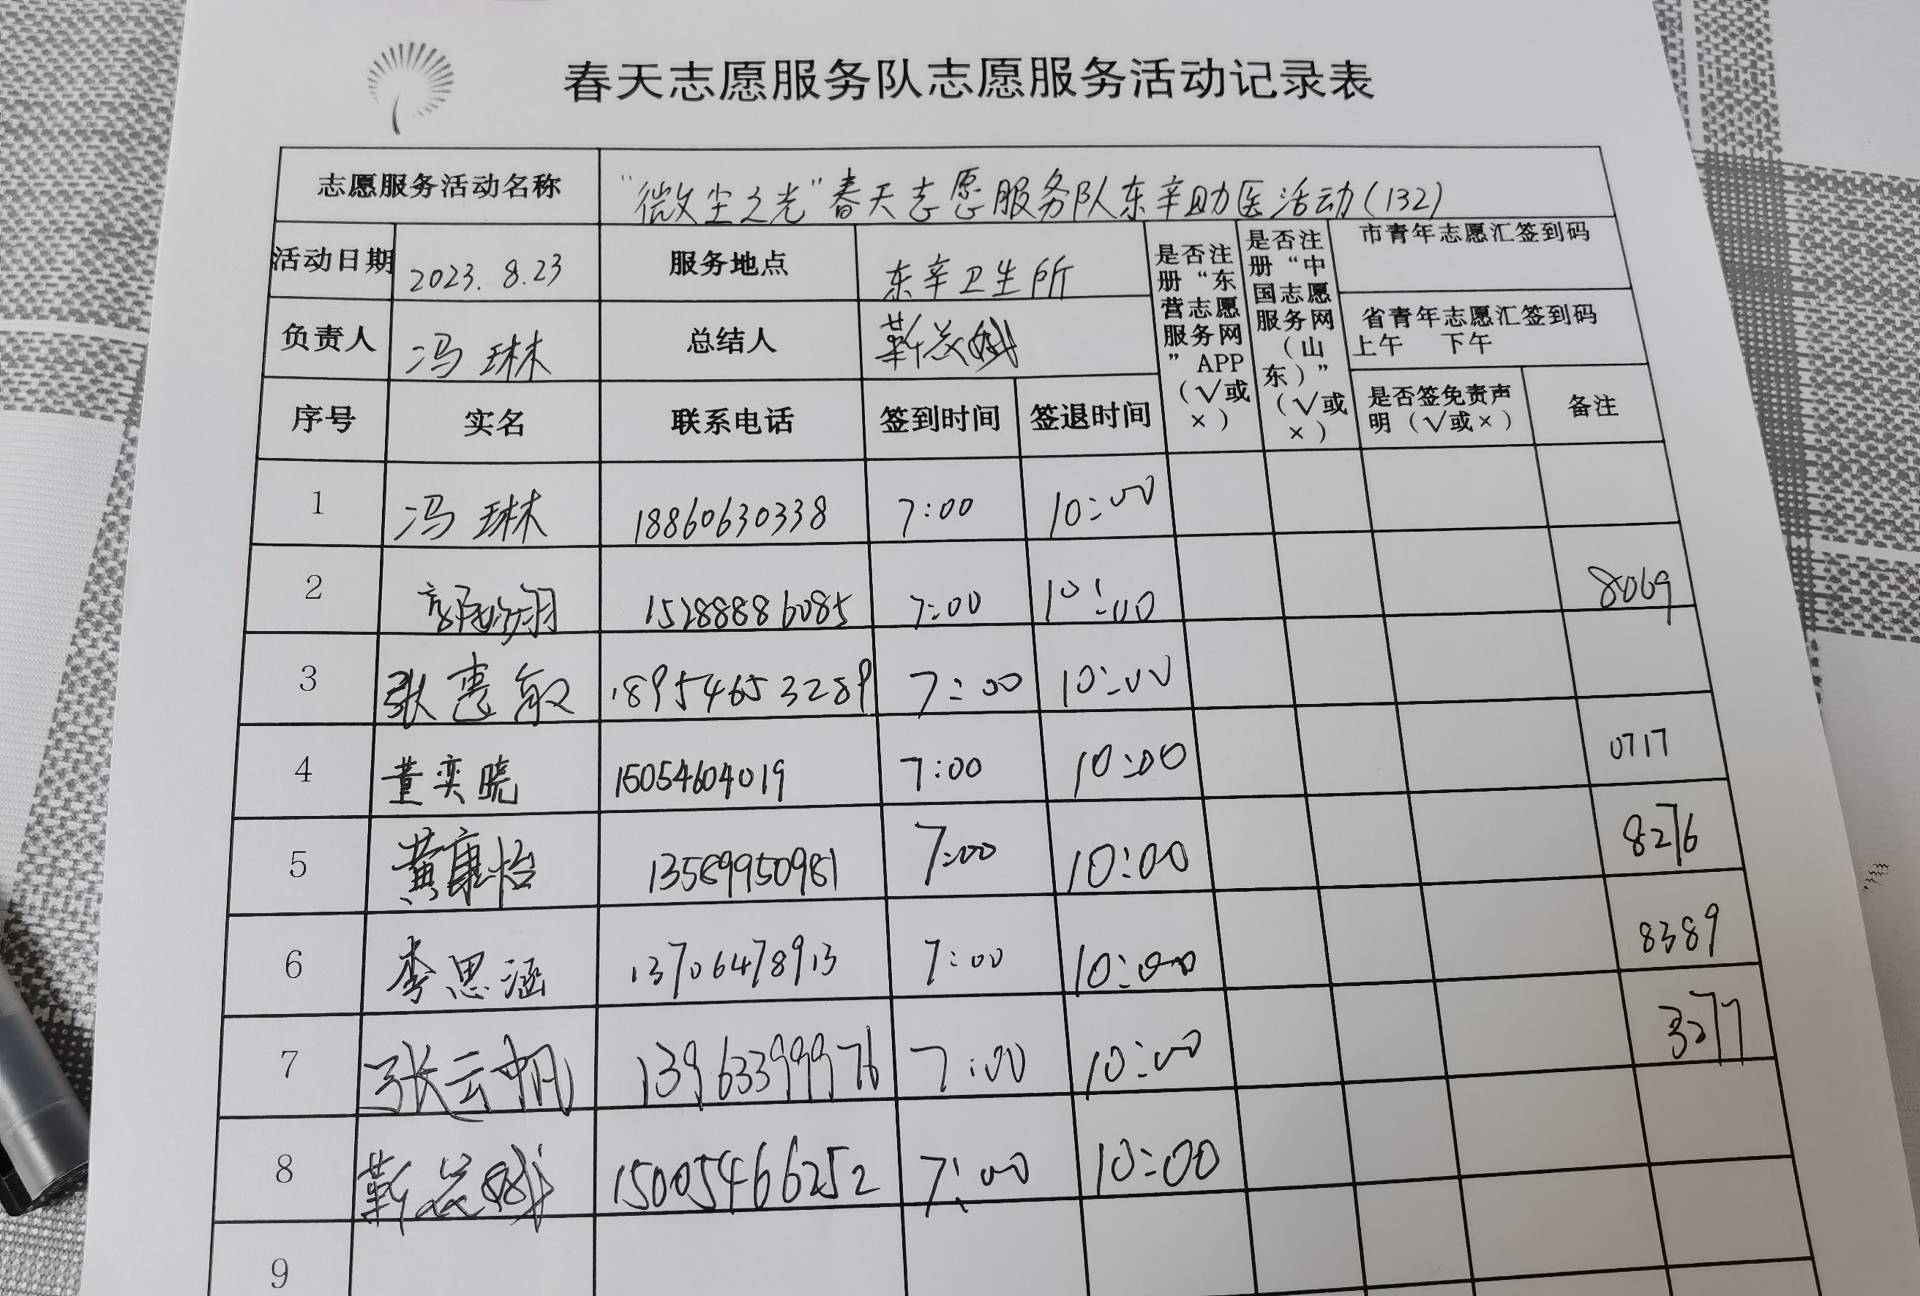 春天志愿服务队志愿服务活动记录表
志愿服务活动名称 "微尘之光"春天志愿服务队东辛助医活动(132)
活动日期 2023.8.23 服务地点 东辛卫生所
是否注册“东营志愿服务网”APP(√或×)
是否注册“中国志愿服务网(山东)”(√或×)
市青年志愿汇签到码
负责人 冯琳 总结人 靳
省青年志愿汇签到码
上午 下午
序号 实名 联系电话 签到时间 签退时间 是否签免责声明(√或×) 备注
1 冯琳 18860630338 7:00 10:00
2 15288886085 7:00 10:00 8069
3 张惠敏 18954653289 7:00 10:00
4 董奕晓 15054604019 7:00 10:00 0717
5 黄康怡 13589950981 7:00 10:00 8276
6 李思涵 13706478913 7:00 10:00 8389
7 张云帆 13963399976 7:00 10:00 3277
8 靳 15005466252 7:00 10:00
9